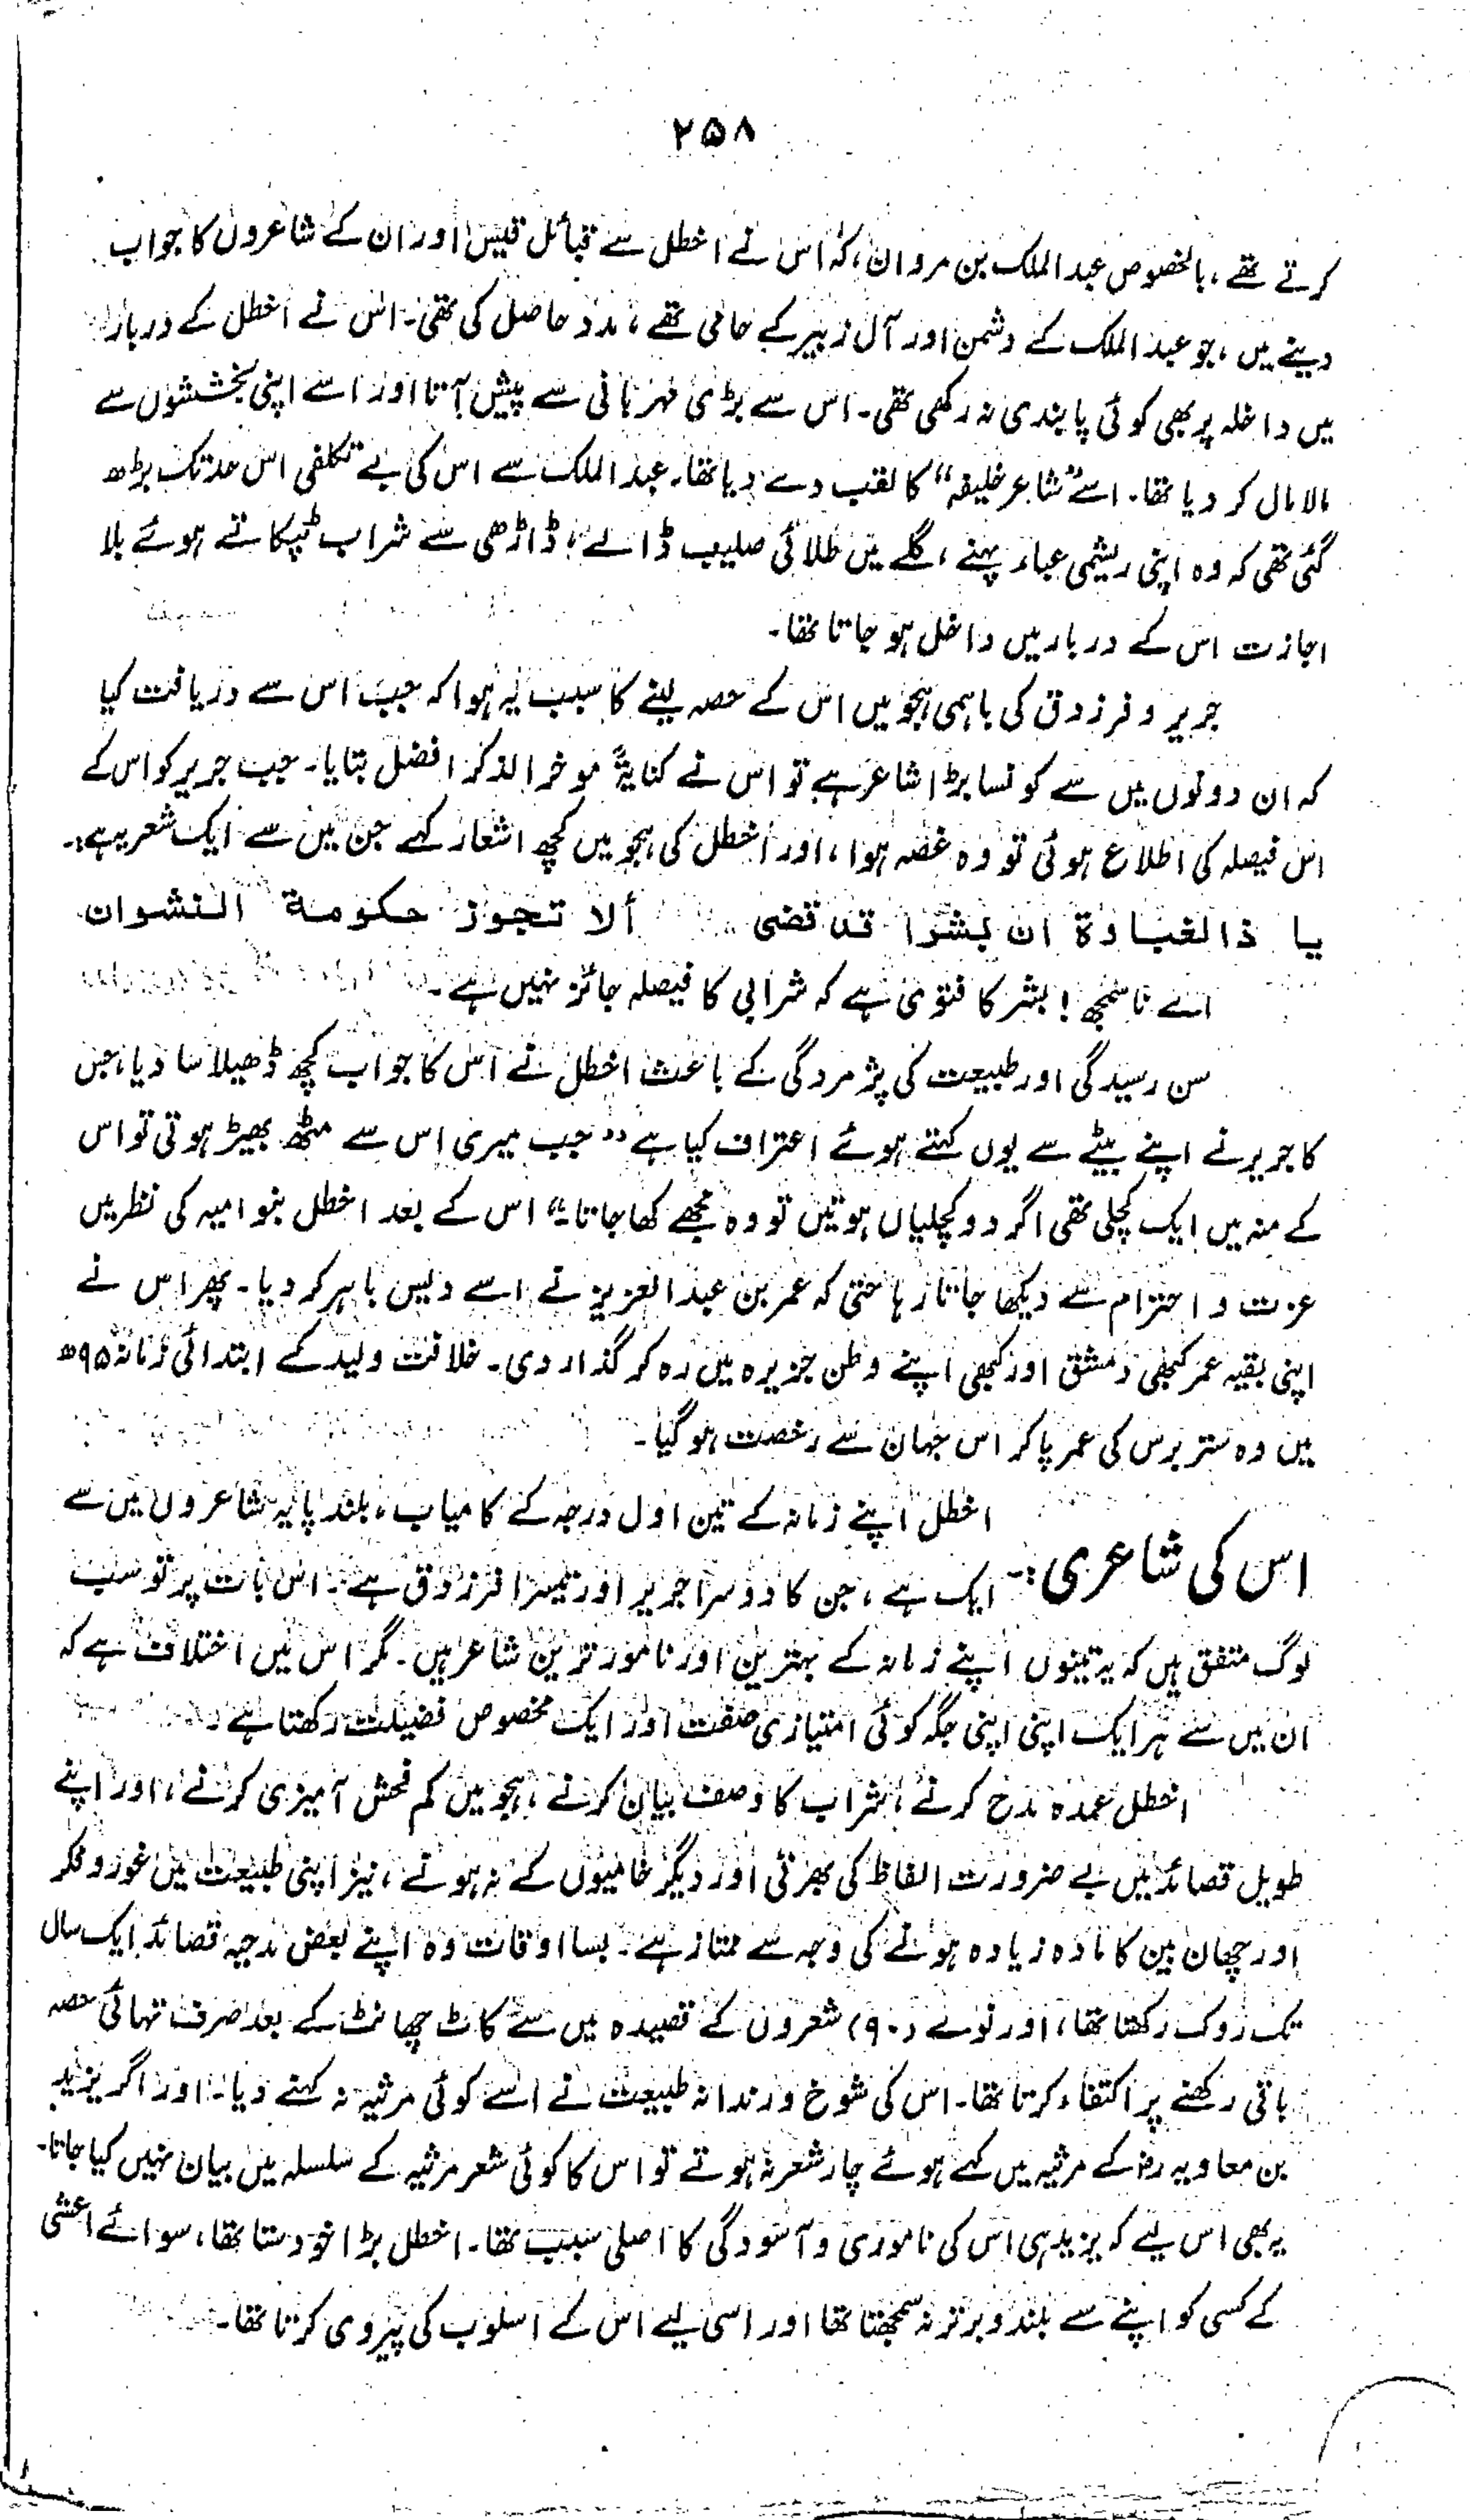 ۲۵۸
کرتے تھے، بالخصوص عبد الملک بن مروان، کہ اس نے اخطل سے قبائل قیس اور ان کے شاعروں کا جواب
دینے میں، جو عبد الملک کے دشمن اور آل زبیر کے حامی تھے، مدد حاصل کی تھی۔ اس نے اخطل کے دربار
میں داخلہ پر بھی کوئی پابندی نہ رکھی تھی۔ اس سے بڑی مہربانی سے پیش آتا اور اسے اپنی بخششوں سے
مالا مال کر دیا تھا۔ اسے "شاعر خلیفہ" کا لقب دے دیا تھا۔ عبد الملک سے اس کی بے تکلفی اس حد تک بڑھ
گئی تھی کہ وہ اپنی ریشمی عباء پہنے، گلے میں طلائی صلیب ڈالے، ڈاڑھی سے شراب ٹپکاتے ہوئے بلا
اجازت اس کے دربار میں داخل ہو جاتا تھا۔
جریر و فرزدق کی باہمی ہجو میں اس کے حصہ لینے کا سبب یہ ہوا کہ جب اس سے دریافت کیا
کہ ان دونوں میں سے کونسا بڑا شاعر ہے تو اس نے کنایۃً موخر الذکر افضل بتایا۔ جب جریر کو اس کے
اس فیصلہ کی اطلاع ہوئی تو وہ غصہ ہوا، اور اخطل کی ہجو میں کچھ اشعار کہے جن میں سے ایک شعر یہ ہے:۔
یا ذالغباوۃ ان بشرا قد قضی ألا تجوز حکومة النشوان
اے ناسمجھ! بشر کا فتویٰ ہے کہ شرابی کا فیصلہ جائز نہیں ہے۔
سن رسیدگی اور طبیعت کی پژمردگی کے باعث اخطل نے اس کا جواب کچھ ڈھیلا سا دیا، جس
کا جریر نے اپنے بیٹے سے یوں کہتے ہوئے اعتراف کیا ہے "جب میری اس سے مٹھ بھیڑ ہوتی تو اس
کے منہ میں ایک کچلی تھی اگر دو کچلیاں ہوتیں تو وہ مجھے کھا جاتا۔" اس کے بعد اخطل بنو امیہ کی نظر میں
عزت و احترام سے دیکھا جاتا رہا حتیٰ کہ عمر بن عبد العزیز نے اسے دیس باہر کر دیا۔ پھر اس نے
اپنی بقیہ عمر کبھی دمشق اور کبھی اپنے وطن جزیرہ میں رہ کر گذار دی۔ خلافت ولید کے ابتدائی زمانہ ۹۵ھ
میں وہ ستر برس کی عمر پا کر اس جہان سے رخصت ہو گیا۔
اس کی شاعری:۔ اخطل اپنے زمانہ کے تین اول درجہ کے کامیاب، بلند پایہ شاعروں میں سے
ایک ہے، جن کا دوسرا جریر اور تیسرا فرزدق ہے۔ اس بات پر تو سب
لوگ متفق ہیں کہ یہ تینوں اپنے زمانہ کے بہترین اور نامور ترین شاعر ہیں۔ مگر اس میں اختلاف ہے کہ
ان میں سے ہر ایک اپنی اپنی جگہ کوئی امتیازی صفت اور ایک مخصوص فضیلت رکھتا ہے۔
اخطل عمدہ مدح کرنے، شراب کا وصف بیان کرنے، ہجو میں کم فحش آمیزی کرنے، اور اپنے
طویل قصائد میں بے ضرورت الفاظ کی بھرتی اور دیگر خامیوں کے نہ ہونے، نیز اپنی طبیعت میں غور و فکر
اور چھان بین کا مادہ زیادہ ہونے کی وجہ سے ممتاز ہے۔ بسا اوقات وہ اپنے بعض مدحیہ قصائد ایک سال
تک روک رکھتا تھا، اور نوے (۹۰) شعروں کے قصیدہ میں سے کاٹ چھانٹ کے بعد صرف تہائی حصہ
باقی رکھنے پر اکتفاء کرتا تھا۔ اس کی شوخ و رندانہ طبیعت نے اسے کوئی مرثیہ نہ کہنے دیا۔ اور اگر یزید
بن معاویہ رض کے مرثیہ میں کہے ہوئے چار شعر نہ ہوتے تو اس کا کوئی شعر مرثیہ کے سلسلہ میں بیان نہیں کیا جاتا۔
یہ بھی اس لیے کہ یزید ہی اس کی ناموری و آسودگی کا اصلی سبب تھا۔ اخطل بڑا خود ستا تھا، سوائے اعشی
کے کسی کو اپنے سے بلند و برتر نہ سمجھتا تھا اور اسی لیے اس کے اسلوب کی پیروی کرتا تھا۔